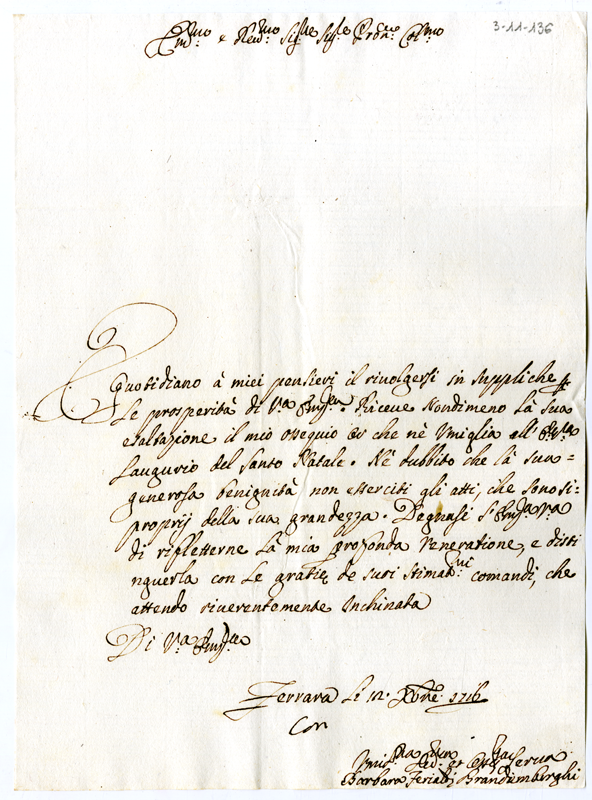 3-11-136
Em.mo e Rev.mo Sig.re Sig.re Pron.e Col.mo
Quotidiano à miei pensieri il rivolgersi in suppliche p
Le prosperità di V.a Em.za. Riceve Nondimeno La sua
esaltazione il mio ossequio che nè Umiglia all'
L'augurio del Santo Natale. Nè dubbito che là sua =
generosa benignità non esserciti gli atti, che sono si=
proprij della sua grandezza. Degnasi
di rifletterne La mia profonda Veneratione, e disti
nguerla con Le gratie de suoi stimat.mi comandi, che
attendo riverentemente Inchinata
Di V.a Em.za
Ferrara Li 12. Xbre. 1716
Con
Umil.ma Dev. et Obb. Serva
Barbara